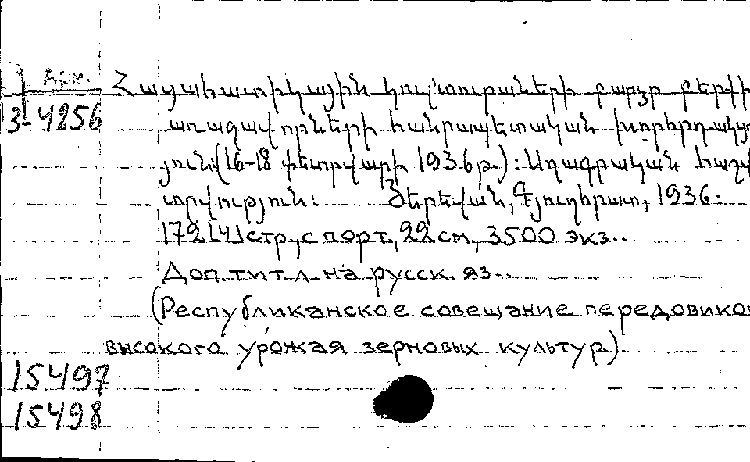 Арм.
Հացահատիկային կուլտուրաների բարձր բերքի
3-4256
առաջավորների հանրապետական խորհրդակցու
յուն (16-18 փետրվարի 1936թ.): Սղագրական հաշ
տվություն: Յերեվան, Գյուղհրատ, 1936.
172[4] стр, с порт, 22 см, 3500 экз.
Доп. тит. л на русск. яз.
(Республиканское совещание передовиков
высокого урожая зерновых культур)
15497
15498